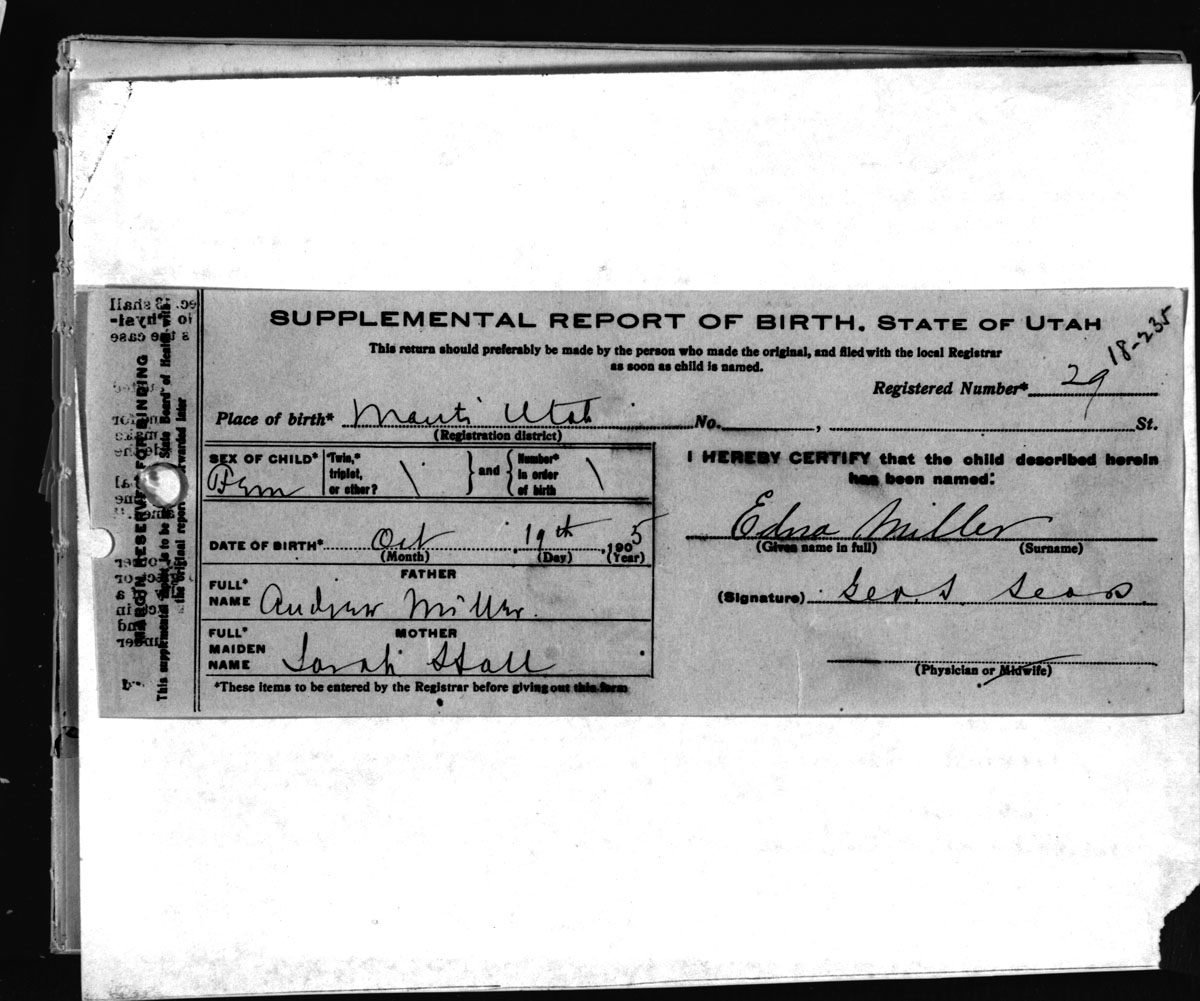 SUPPLEMENTAL REPORT OF BIRTH. STATE OF UTAH
18-235
This return should preferably be made by the person who made the original, and filed with the local Registrar
as soon as child is named.
Registered Number* 29
Place of birth* Manti Utah No. , St.
(Registration district)
SEX OF CHILD* Fem
Twin,* triplet, or other? \ } and { Number* in order of birth \
I HEREBY CERTIFY that the child described herein
has been named:
Edna Miller
(Given name in full) (Surname)
DATE OF BIRTH* Oct 19th 1905
(Month) (Day) (Year)
FATHER
FULL* NAME Andrew Miller.
(Signature) Geo. S. Sears
MOTHER
FULL* MAIDEN NAME Sarah Stall
(Physician or Midwife)
*These items to be entered by the Registrar before giving out this form
MARGIN RESERVED FOR BINDING
This supplemental report is to be State Board of Health
the original report forwarded later